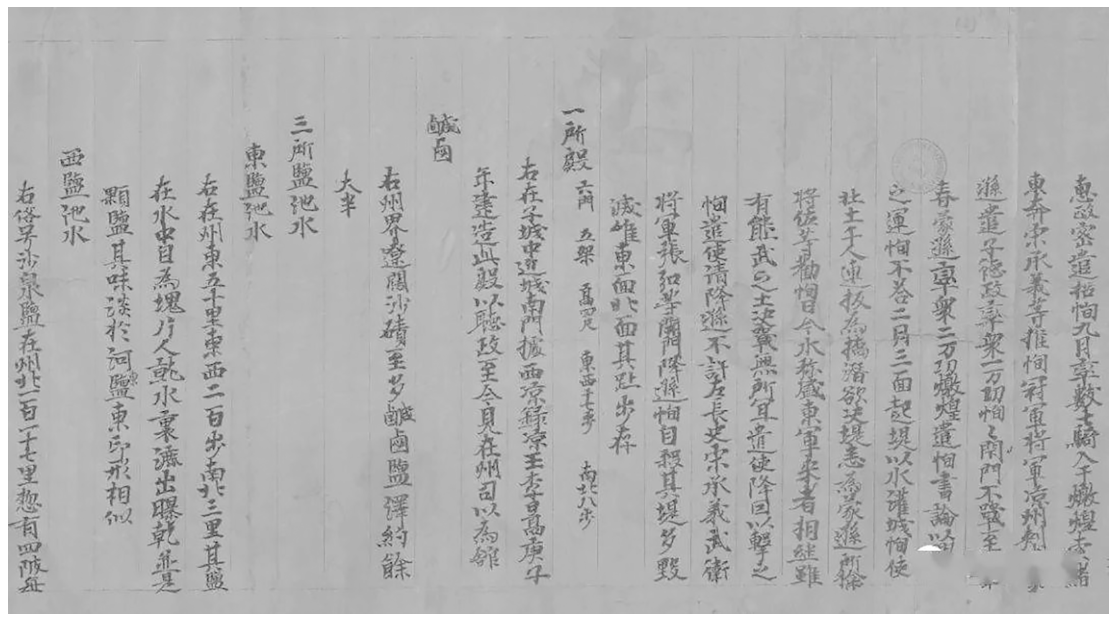 惠政密遣招恂九月率數十騎入于燉煌索緒
東奔宋承義等推恂冠軍將軍涼州刾
遜遣子德政率衆一万功恂〻閇門不戰至
春蒙遜率衆二万功燉煌遣恂書論以
之運恂不荅二月三面起堤以水灌城恂使
壯土千人連板為橋潛欲决堤悉為蒙遜所擒
將佐等勸恂曰今水称盛東軍來者相繼雖
有熊武之士决戰無所宜遣使降因以擊之
恂遣使請降遜不許左長史宋承義武衛
將軍張弘等開門降遜恂自殺其堤多毀
滅唯東面北面其趾步存
一所殿 六門 五架 高四尺 東西十七步 南北八步
右在子城中近城南門據西涼錄涼王李暠庚子
年建造此殿以聽政至今見在州司以為舘
鹹鹵
右州界遼闊沙磧至多鹹鹵鹽澤約餘
大半
三所鹽池水
東鹽池水
右在州東五十里東西二百步南北三里其鹽
在水中自為塊片人就水裏漉出曝乾並是
顆鹽其味淡於河東鹽印形相似
西鹽池水
右俗号沙泉鹽在州北一百一十七里惣有四陂每